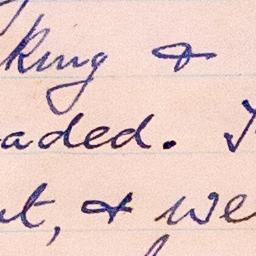 king &
aded. I
t, & we